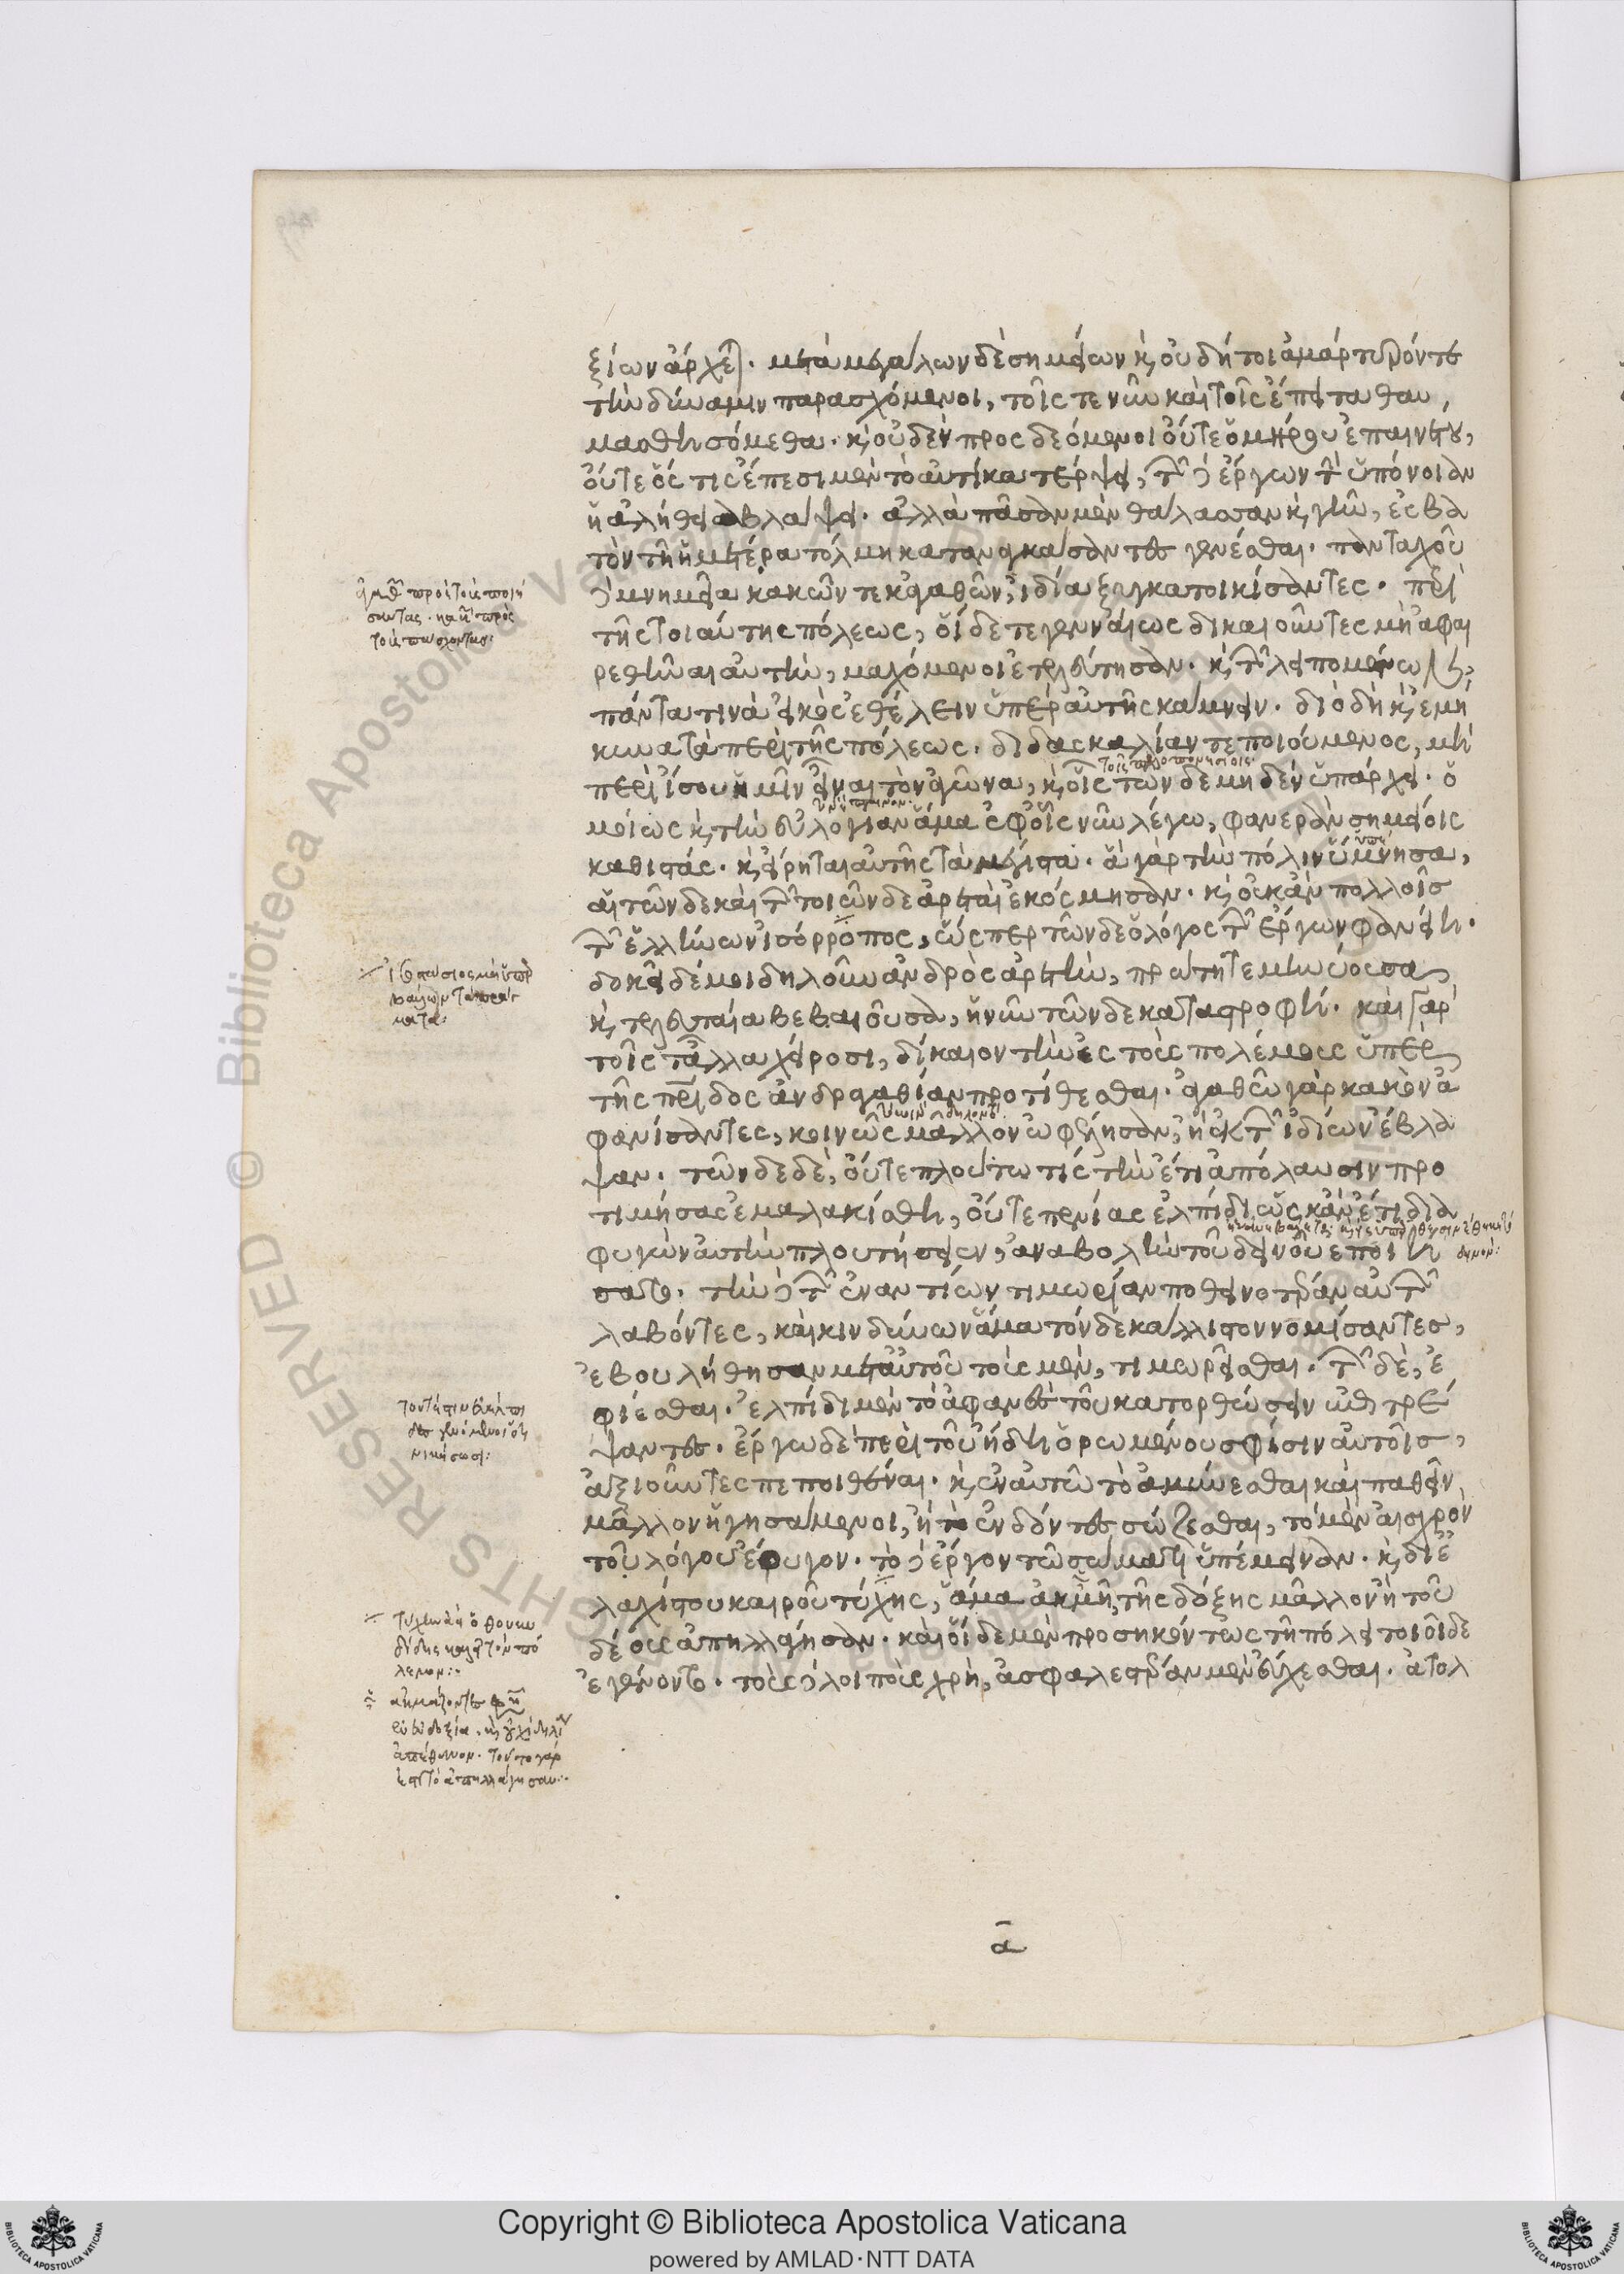 ξίων ἄρχεται. μετὰ μεγάλων δὲ σημείων καὶ οὐ δή τοι ἀμάρτυρόν τε
τὴν δύναμιν παρασχόμενοι, τοῖς τε νῦν καὶ τοῖς ἔπειτα θαυ
μασθησόμεθα. καὶ οὐδὲν προσδεόμενοι οὔτε ὁμήρου ἐπαινέτου,
οὔτε ὅστις ἔπεσι μὲν τὸ αὐτίκα τέρψει, τῶν δὲ ἔργων τὴν ὑπόνοιαν
ἡ ἀλήθεια βλάψει. ἀλλὰ πᾶσαν μὲν θάλασσαν καὶ γῆν, ἐσβα
τὸν τῇ ἡμετέρα τόλμη καταναγκάσαντες γενέσθαι. πανταχοῦ
δὲ μνημεῖα κακῶν τε κἀγαθῶν, ἀίδια ξυγκατοικίσαντες. περὶ
τῆς τοιαύτης πόλεως, οἵδε τε γενναίως δικαιοῦντες μὴ ἀφαι
ρεθῆναι αὐτὴν, μαχόμενοι ἐτελεύτησαν. καὶ τῶν λειπομένων
πάντα τινὰ εἰκὸς ἐθέλειν ὑπὲρ αὐτῆς κάμνειν. διὸ δὴ καὶ ἐμή
κυνα τὰ περὶ τῆς πόλεως. διδασκαλίαν τε ποιούμενος, μὴ
τοῖς πελοποννησίοις
περὶ ἴσου ἡμῖν εἶναι τὸν ἀγῶνα, καὶ οἷς τῶνδε μηδὲν ὑπάρχει. ὁ
μοίως καὶ τὴν εὐλογίαν ἅμα ἐφ' οἷς νῦν λέγω, φανερὰν σημείοις
καθιστάς. καὶ εἴρηται αὐτῆς τὰ μέγιστα. ἃ γὰρ τὴν πόλιν ὕμνησα,
αἱ τῶνδε καὶ τῶν τοιῶνδε ἀρεταὶ ἐκόσμησαν. καὶ οὐκ ἂν πολλοῖς
τῶν ἑλλήνων ἰσόρροπος, ὥσπερ τῶνδε ὁ λόγος τῶν ἔργων φανείη.
δοκεῖ δέ μοι δηλοῦν ἀνδρὸς ἀρετὴν, πρώτη τε μηνύουσα
καὶ τελευταία βεβαιοῦσα, ἡ νῦν τῶνδε καταστροφή. καὶ γὰρ
τοῖς τἄλλα χείροσι, δίκαιον τὴν ἐς τοὺς πολέμους ὑπὲρ
τῆς πατρίδος ἀνδραγαθίαν προτίθεσθαι. ἀγαθῶ γὰρ κακὸν ἀ
φανίσαντες, κοινῶς μᾶλλον ὠφέλησαν, ἢ ἐκ τῶν ἰδίων ἔβλα
ψαν. τῶνδε δὲ, οὔτε πλούτω τίς τὴν ἔτι ἀπόλαυσιν προ
τιμήσας ἐμαλακίσθη, οὔτε πενίας ἐλπίδι ὡς κἂν ἔτι δια
φυγὼν αὐτὴν πλουτήσειεν, ἀναβολὴν τοῦ δεινοῦ ἐποιή
σατο. τὴν δὲ τῶν ἐναντίων τιμωρίαν ποθεινοτέραν αὐτῶν
λαβόντες, καὶ κινδύνων ἅμα τόνδε κάλλιστον νομίσαντες,
ἐβουλήθησαν μετ' αὐτοῦ τοὺς μὲν, τιμωρεῖσθαι. τῶν δὲ, ἐ
φίεσθαι. ἐλπίδι μὲν τὸ ἀφανὲς τοῦ κατορθώσειν ἐπιτρέ
ψαντες. ἔργω δὲ περὶ τοῦ ἤδη ὁρωμένου σφίσιν αὐτοῖς,
ἀξιοῦντες πεποιθέναι. καὶ ἐν αὐτῶ τὸ ἀμύνεσθαι καὶ παθεῖν
μᾶλλον ἡγησάμενοι, ἢ τὸ ἐνδόντες σώζεσθαι, τὸ μὲν αἰσχρὸν
τοῦ λόγου ἔφυγον. τὸ δὲ ἔργον τῶ σώματι ὑπέμειναν. καὶ δι' ἐ
λαχίστου καιροῦ τύχης, ἅμα ἀκμῆ τῆς δόξης μᾶλλον ἢ τοῦ
δέους ἀπηλλάγησαν. καὶ οἵδε μὲν προσηκόντως τῆ πόλει τοιοίδε
ἐγένοντο. τοὺς δὲ λοιποὺς χρὴ, ἀσφαλεστέραν μὲν εὔχεσθαι. ἀτολ
ἀγαθῶν πρὸς τοὺς ποιή
σαντας. κακῶν πρὸς
τοὺς πάσχοντας:
ἰσοστάσιος μὴ ὑπερ
βαίνων τὰ πράγ
ματα:
τουτέστιν εὐέλπι
δες γενόμενοι ὅτι
νικήσωσι:
δίδης
λεμον:
ἀκμάζοντες
εὐδοξία
ἀπέθανον. τοῦτο γάρ
ἐστι τὸ ἀπηλλάγησαν:
α